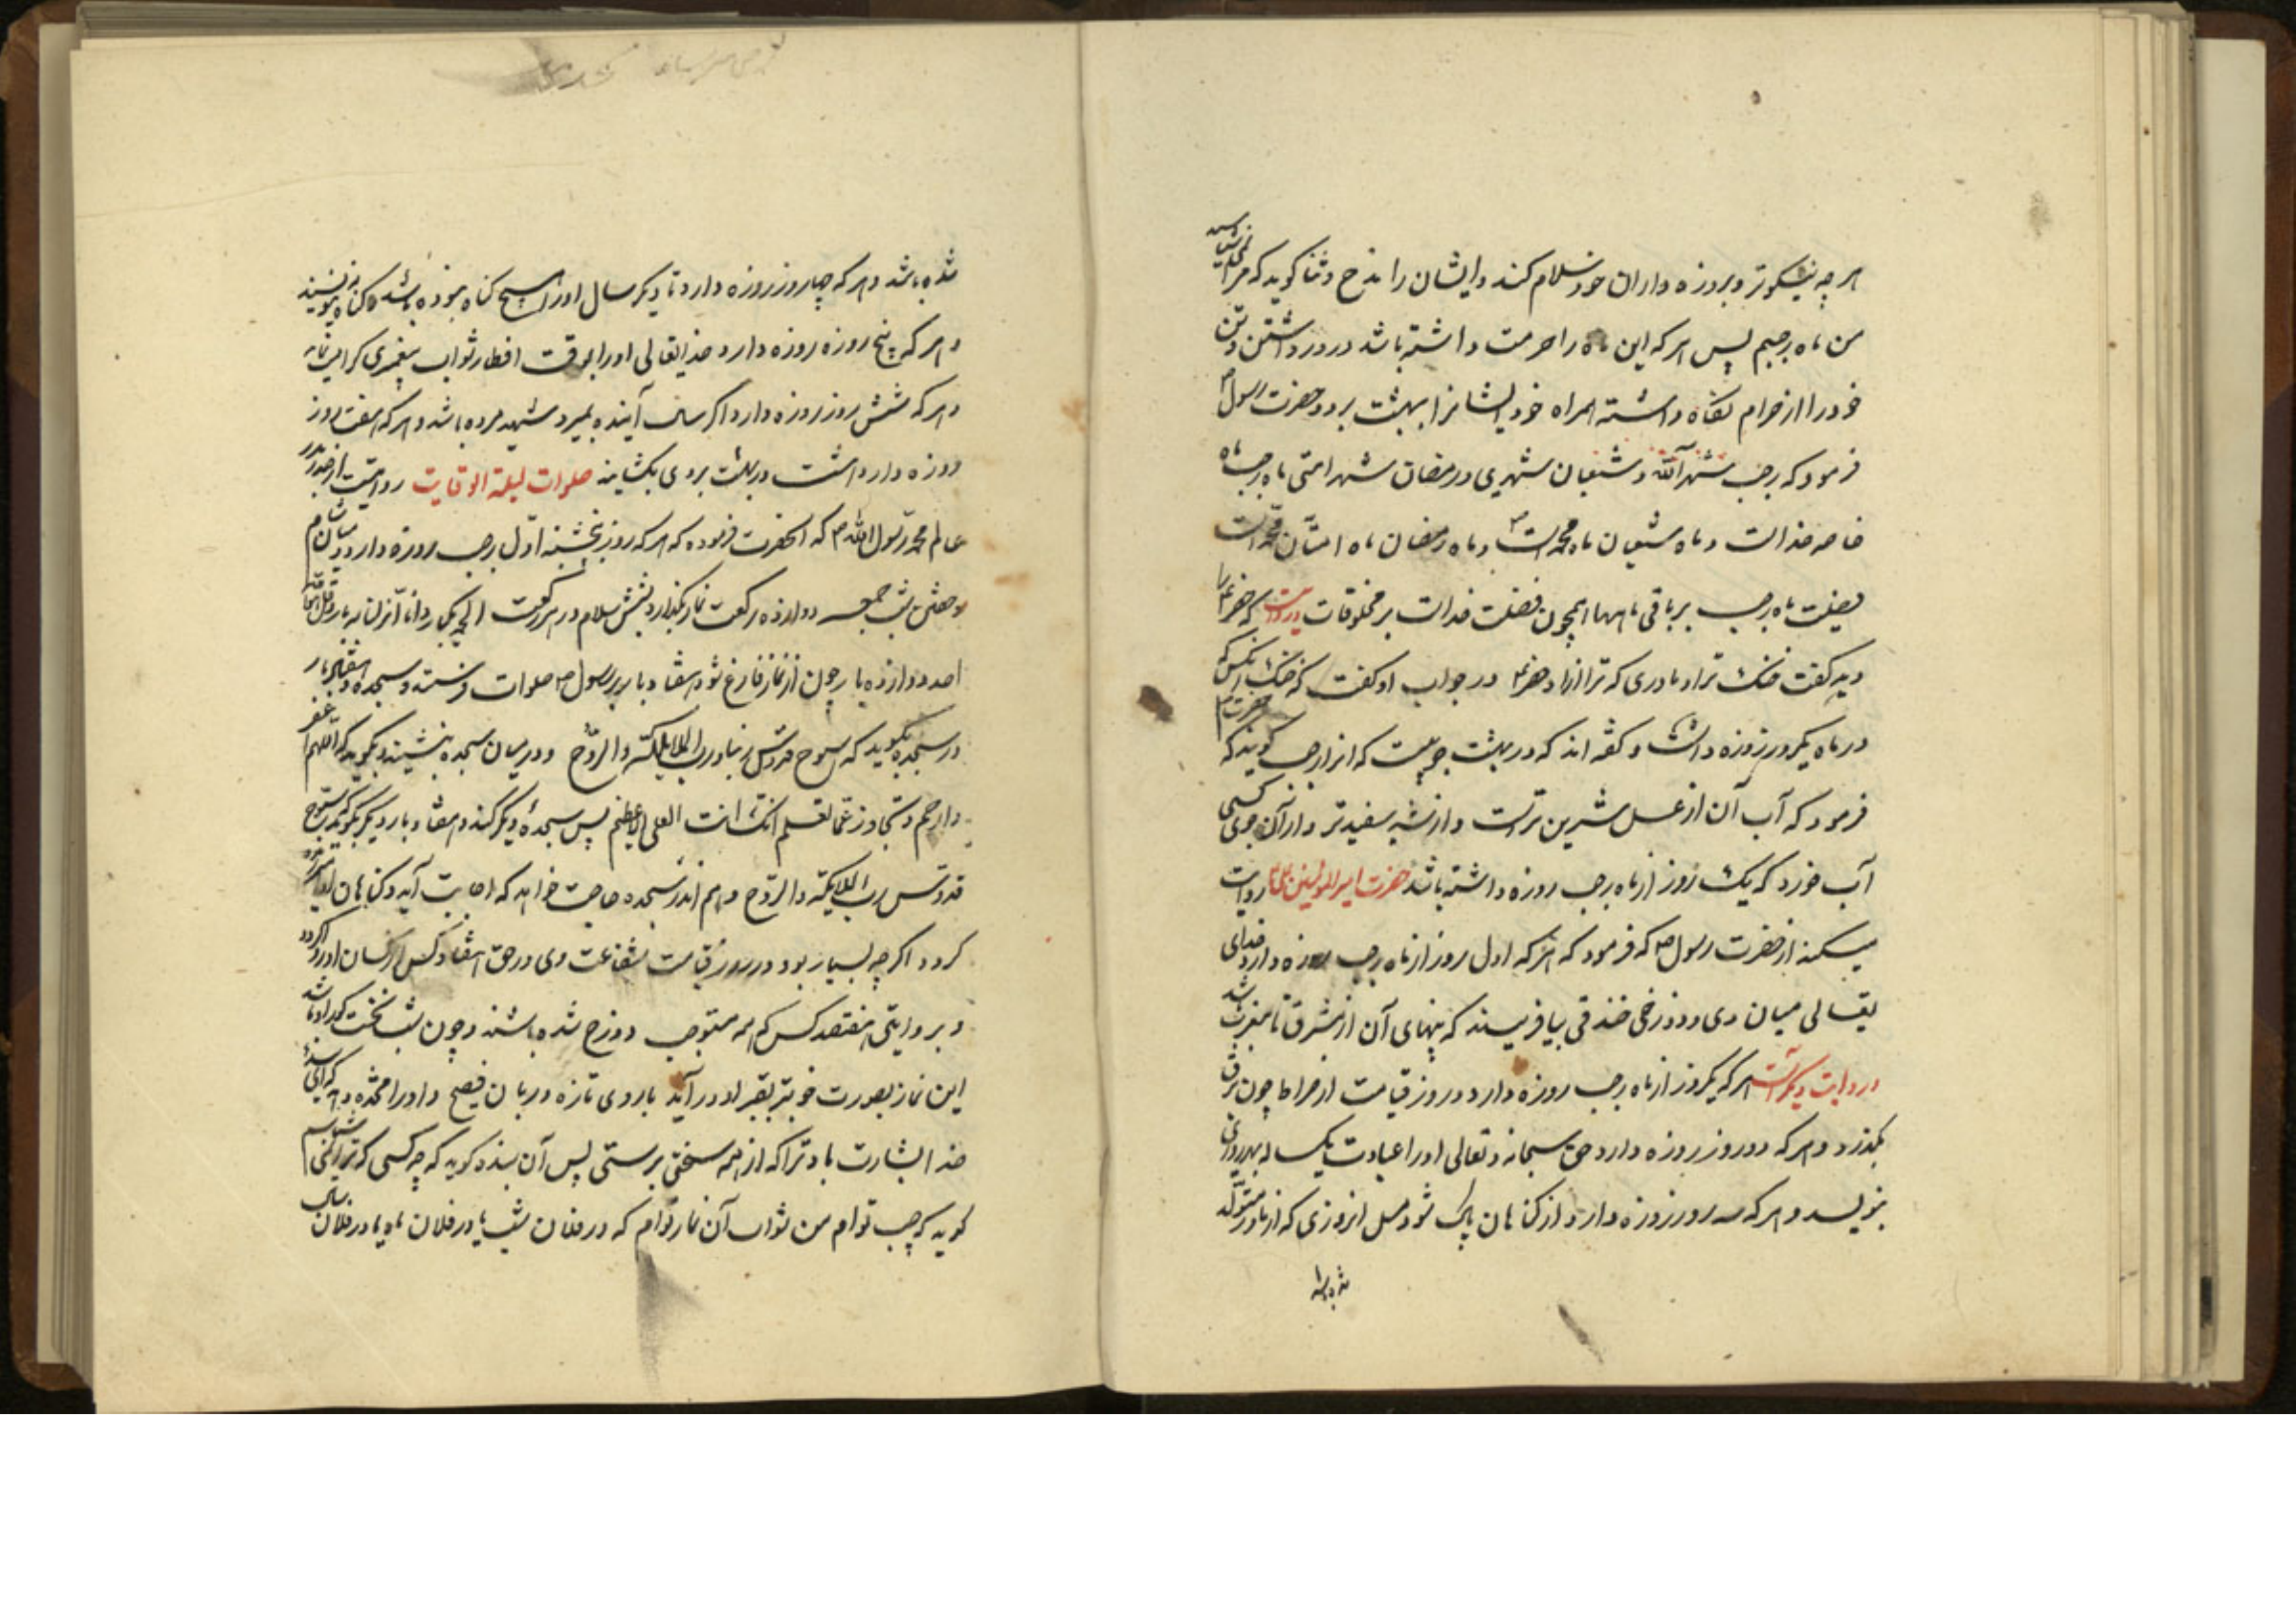 هر چه نیکوتر و بروزه داران خود سلام کند و ایشان را مدح و ثنا گوید که مرا نمی شناسید
من ماه رجبم پس هر که این ماه را حرمت داشته باشد در روزه داشتن و تن
خود را از حرام نگاه داشته همراه خود ایشانرا ببهشت برد و حضرت رسول ص
فرمود که رجب شهر الله و شعبان شهری و رمضان شهر امتی ماه رجب ماه
خاصه خداست و ماه شعبان ماه محمد است ص و ماه رمضان ماه امتان محمد است
فضیلت ماه رجب بر باقی ماهها همچون فضیلت خداست بر مخلوقات و روایت است که خضر را
دید گفت خنک ترا و مادری که ترا زاد خضر در جواب او گفت که خنک آنکس که
در ماه یکروز روزه داشت و گفته اند که در بهشت جوییست که انرا رجب گویند که حضرت ص
فرمود که آب آن از عسل شیرین ترست و از شیر سفیدتر و از آن جوی کسی
آب خورد که یک روز از ماه رجب روزه داشته باشد حضرت امیر المؤمنین علی روایت
میکند از حضرت رسول ص که فرمود که هر که اول روز از ماه رجب روزه دارد خدای
تعالی میان وی و دوزخ خندقی بیافریند که پهنای آن از مشرق تا مغرب باشد
در روایت دیگر است هر که یکروز از ماه رجب روزه دارد در روز قیامت از صراط چون برق
بگذرد و هر که دو روز روزه دارد حق سبحانه و تعالی او را عبادت یکساله بهر روزی
بنویسد و هر که سه روز روزه دارد از گناهان پاک شود مثل انروزی که از مادر متولد
شده باشد
شده باشد و هر که چهار روز روزه دارد تا دیگر سال او را هیچ گناه ننویسند
و هر که پنج روزه روزه دارد خدایتعالی او را بوقت افطار ثواب پیغمبری کرامت نماید
و هر که شش روز روزه دارد اگر سال آینده بمیرد شهید مرده باشد و هر که هفت روز
روزه دارد هشت در بهشت بروی بکشایند صلوات لیلة الوقایت روایت است از صدر بدر
عالم محمد رسول الله ص که آنحضرت فرموده که هر که روز پنجشنبه اول رجب روزه دارد و میان شام
و خفتن شب جمعه دوازده رکعت نماز بگذارد بشش سلام در هر رکعت الحمد یکبار و انا انزلناه سه بار و قل هو الله
احد دوازده بار چون از نماز فارغ شود هفتاد بار بر رسول ص صلوات فرستد و سجده و هفتاد بار
در سجده بگوید که سبوح قدوس ربنا و رب الملائکة و الروح و در میان سجده بنشیند و بگوید که اللهم اغفر
و ارحم و تجاوز عما تعلم انک انت العلی الاعظم پس سجده دیگر کند و هفتاد بار دیگر بگوید سبوح
قدوس رب الملائکة و الروح و هم اندر سجده حاجت خواهد که اجابت آید و گناهان او آمرزیده
کردد اگر چه بسیار بود و در روز قیامت شفاعت وی در حق هفتاد کس از کسان او روا گردد
و بروایتی هفتصد کس که همه مستوجب دوزخ شده باشند و چون شب نخست گور او باشد
این نماز بصورت خوبتر بقبر او در آید با روی تازه و زبان فصیح و او را مژده دهد که ای بنده
خدا بشارت باد ترا که از همه سختی برستی پس آن بنده گوید که چه کسی که ترا نمی شناسم
گوید که چه توام من ثواب آن نماز توام که در فلان شب یا در فلان ماه یا در فلان سال